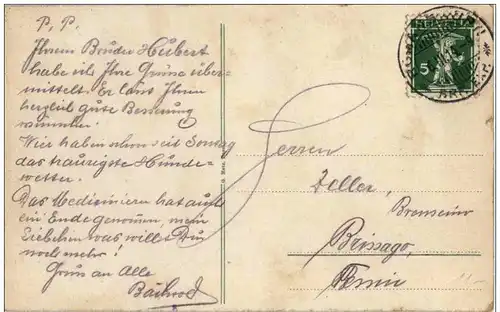 P. P.
Ihrem Bruder Hubert
habe ich Ihre Grüsse über-
mittelt. Er lässt Ihnen
herzlich gute Besserung
wünschen.
Wir haben schon seit Sonntag
das traurigste Hunde-
wetter.
Das Medizinieren hat auch
ein Ende genommen, mein
Liebchen was willst Du
noch mehr!
Gruss an Alle
Herren
Zeller,
Brissago,
Tessin
5